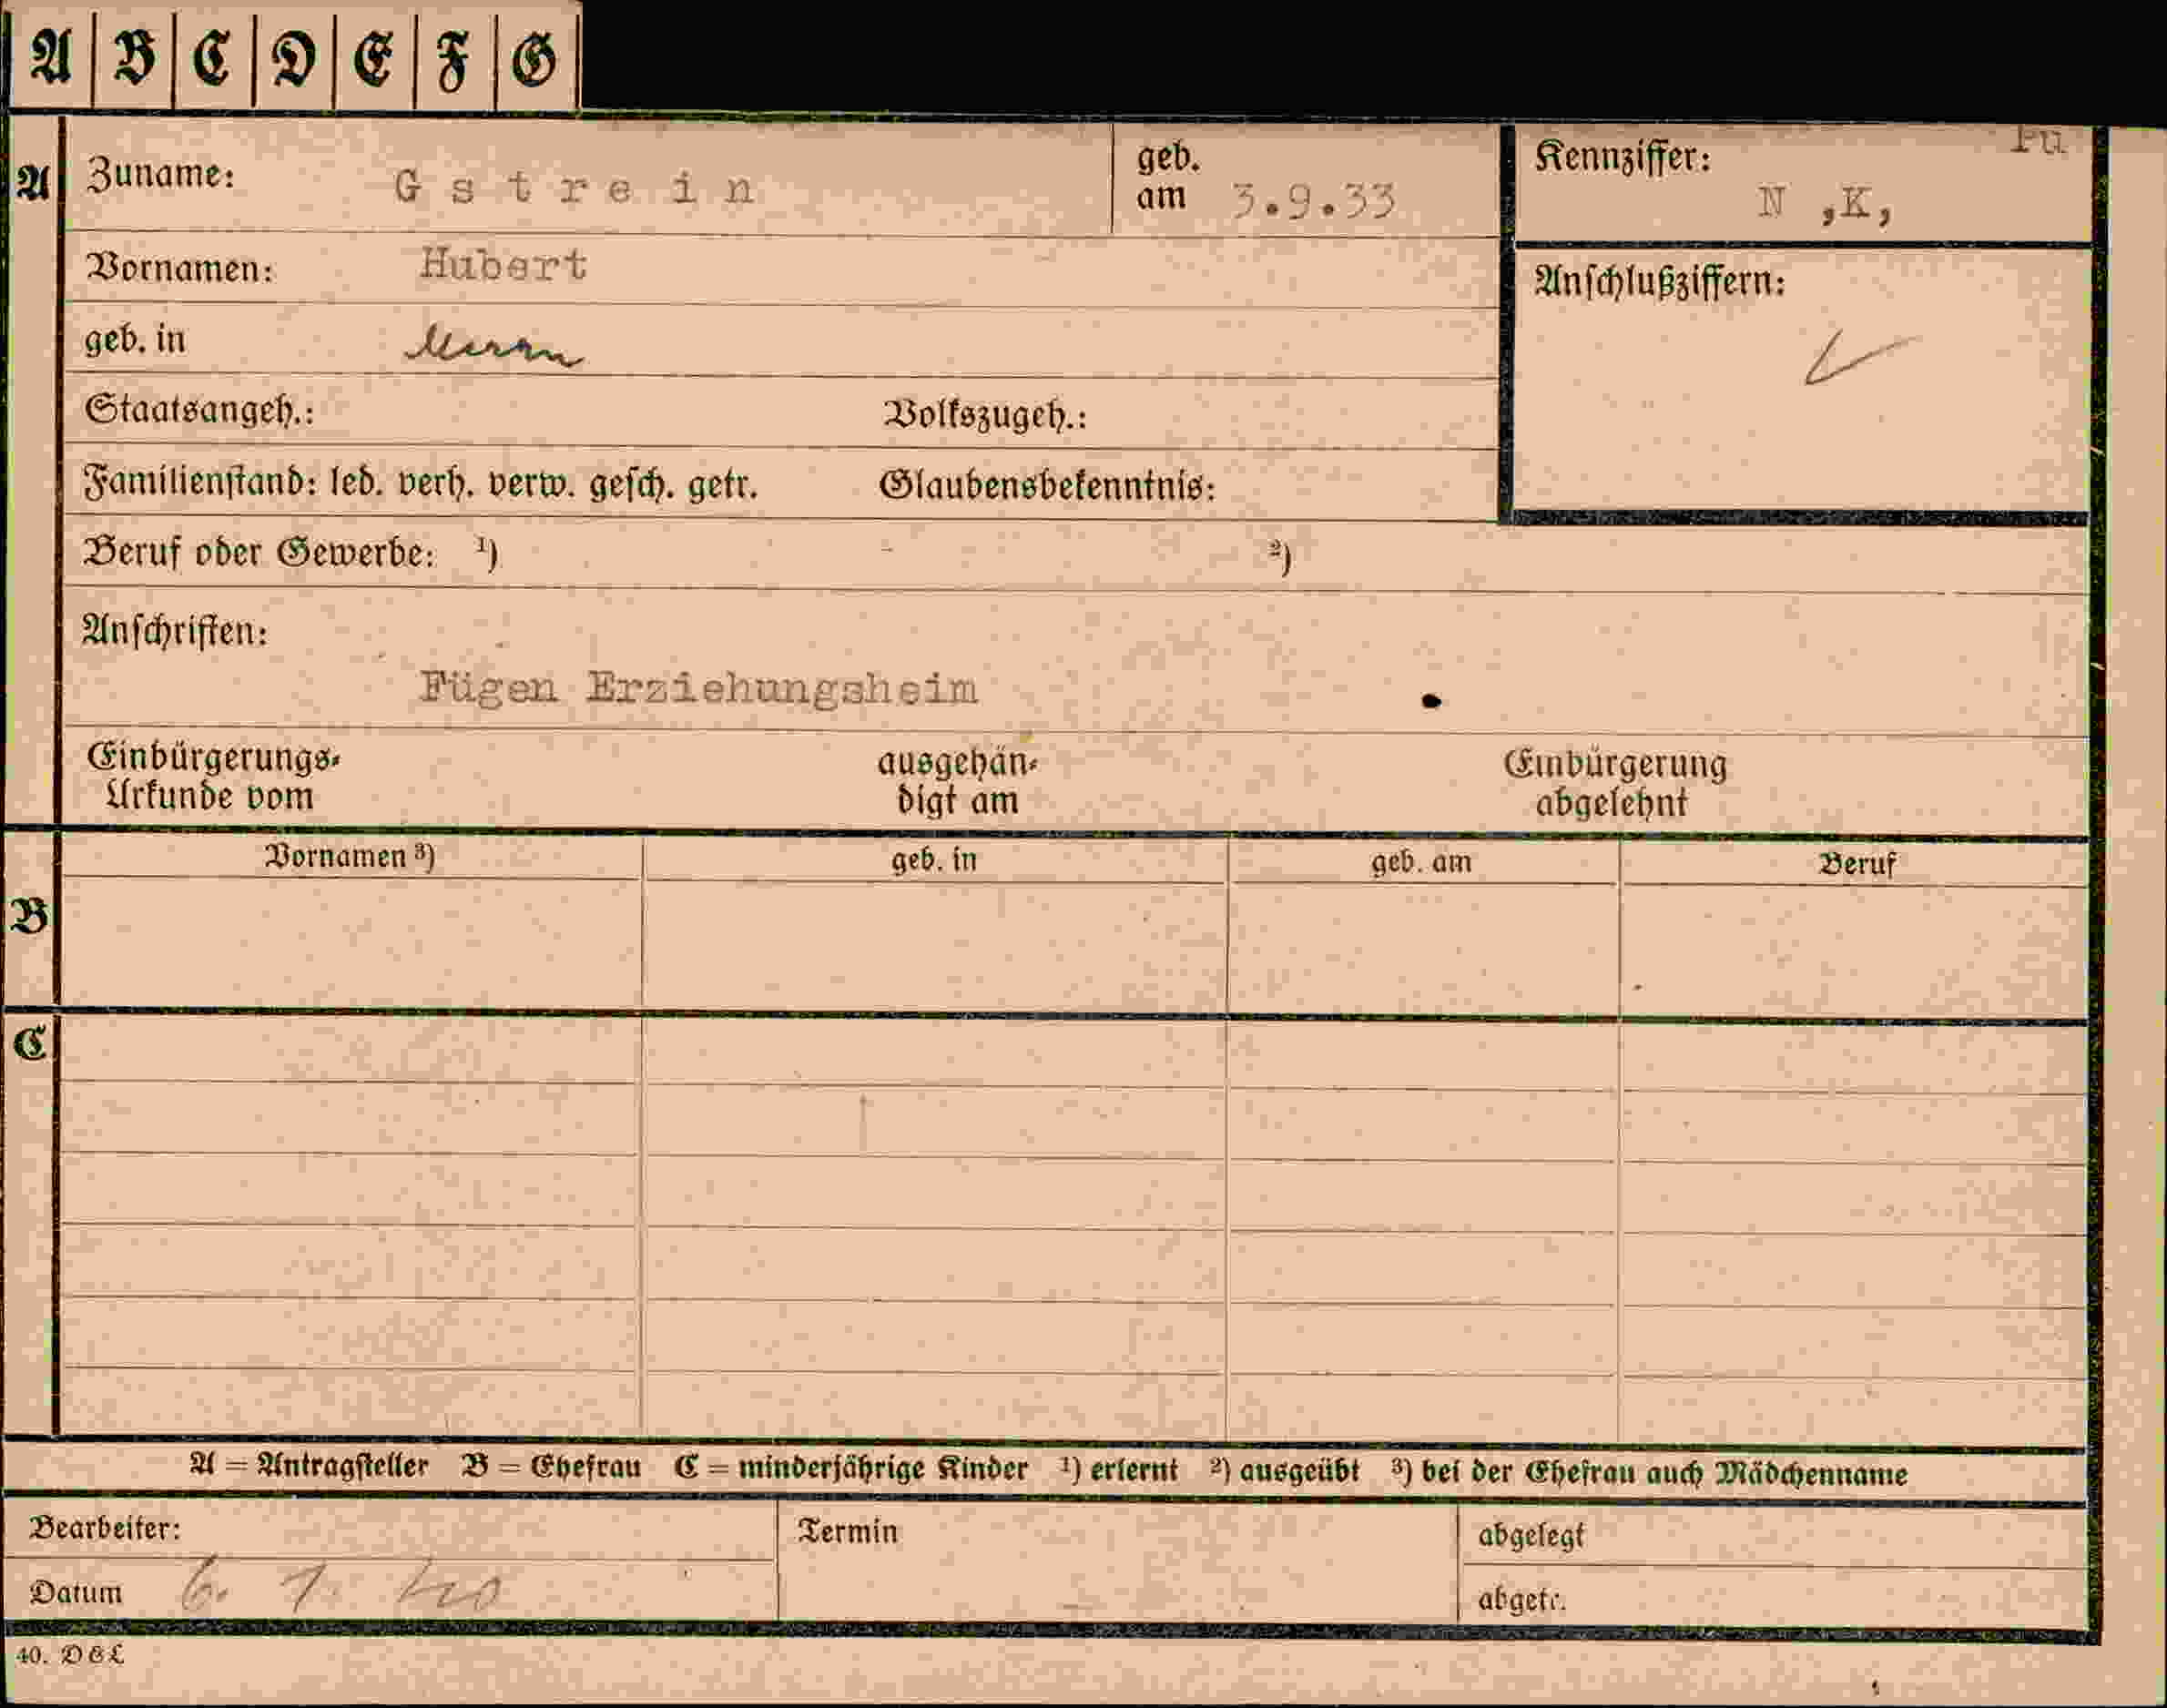 A B C D E F G
A Zuname: Gstrein geb. am 3.9.33
Kennziffer: N ,K,
Vornamen: Hubert
Anschlußziffern:
geb. in Meran
Staatsangeh.: Volkszugeh.:
Familienstand: led. verh. verw. gesch. getr. Glaubensbekenntnis:
Beruf oder Gewerbe: ¹) - ²)
Anschriften:
Fügen Erziehungsheim
Einbürgerungs- ausgehän- Einbürgerung
Urkunde vom digt am abgelehnt
Vornamen ³) geb. in geb. am Beruf
B
C
A = Antragsteller B = Ehefrau C = minderjährige Kinder ¹) erlernt ²) ausgeübt ³) bei der Ehefrau auch Mädchenname
Bearbeiter: Termin abgelegt
Datum 6. 7. 40 abgetr.